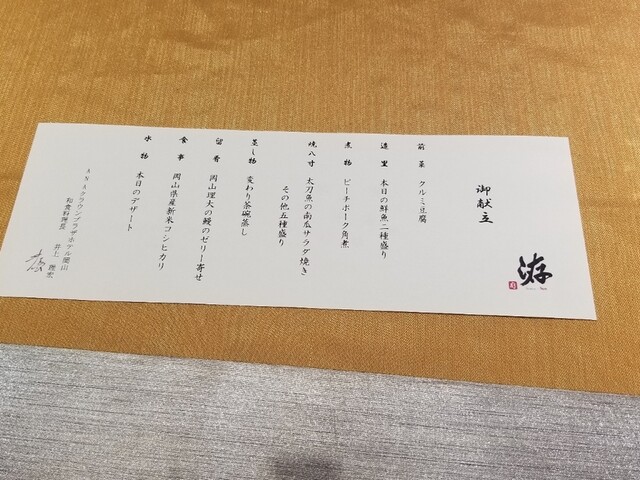 游
御献立
前菜 クルミ豆腐
造里 本日の鮮魚二種盛り
煮物 ピーチポーク角煮
焼八寸 太刀魚の南瓜サラダ焼き
その他五種盛り
蒸し物 変わり茶碗蒸し
留肴 岡山理大の鰻のゼリー寄せ
食事 岡山県産新米コシヒカリ
水物 本日のデザート
ANAクラウンプラザホテル岡山
和食料理長 井上 雅宏